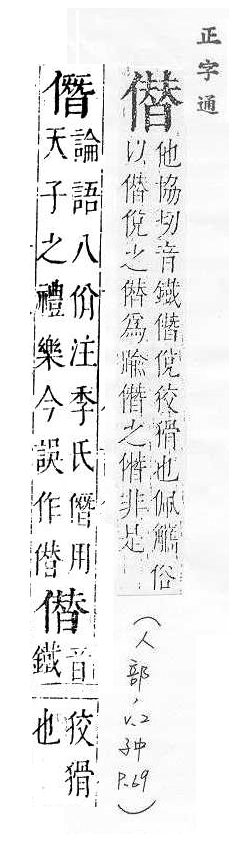 正字通
僣
他協切音鐵僣侻狡猾也佩觿俗
以僣侻之僣爲踰僭之僭非是
(人部, v.2 子中 P.69)
僭
論語八佾注季氏僭用
天子之禮樂今誤作僣
僣
音
鐵
狡猾
也